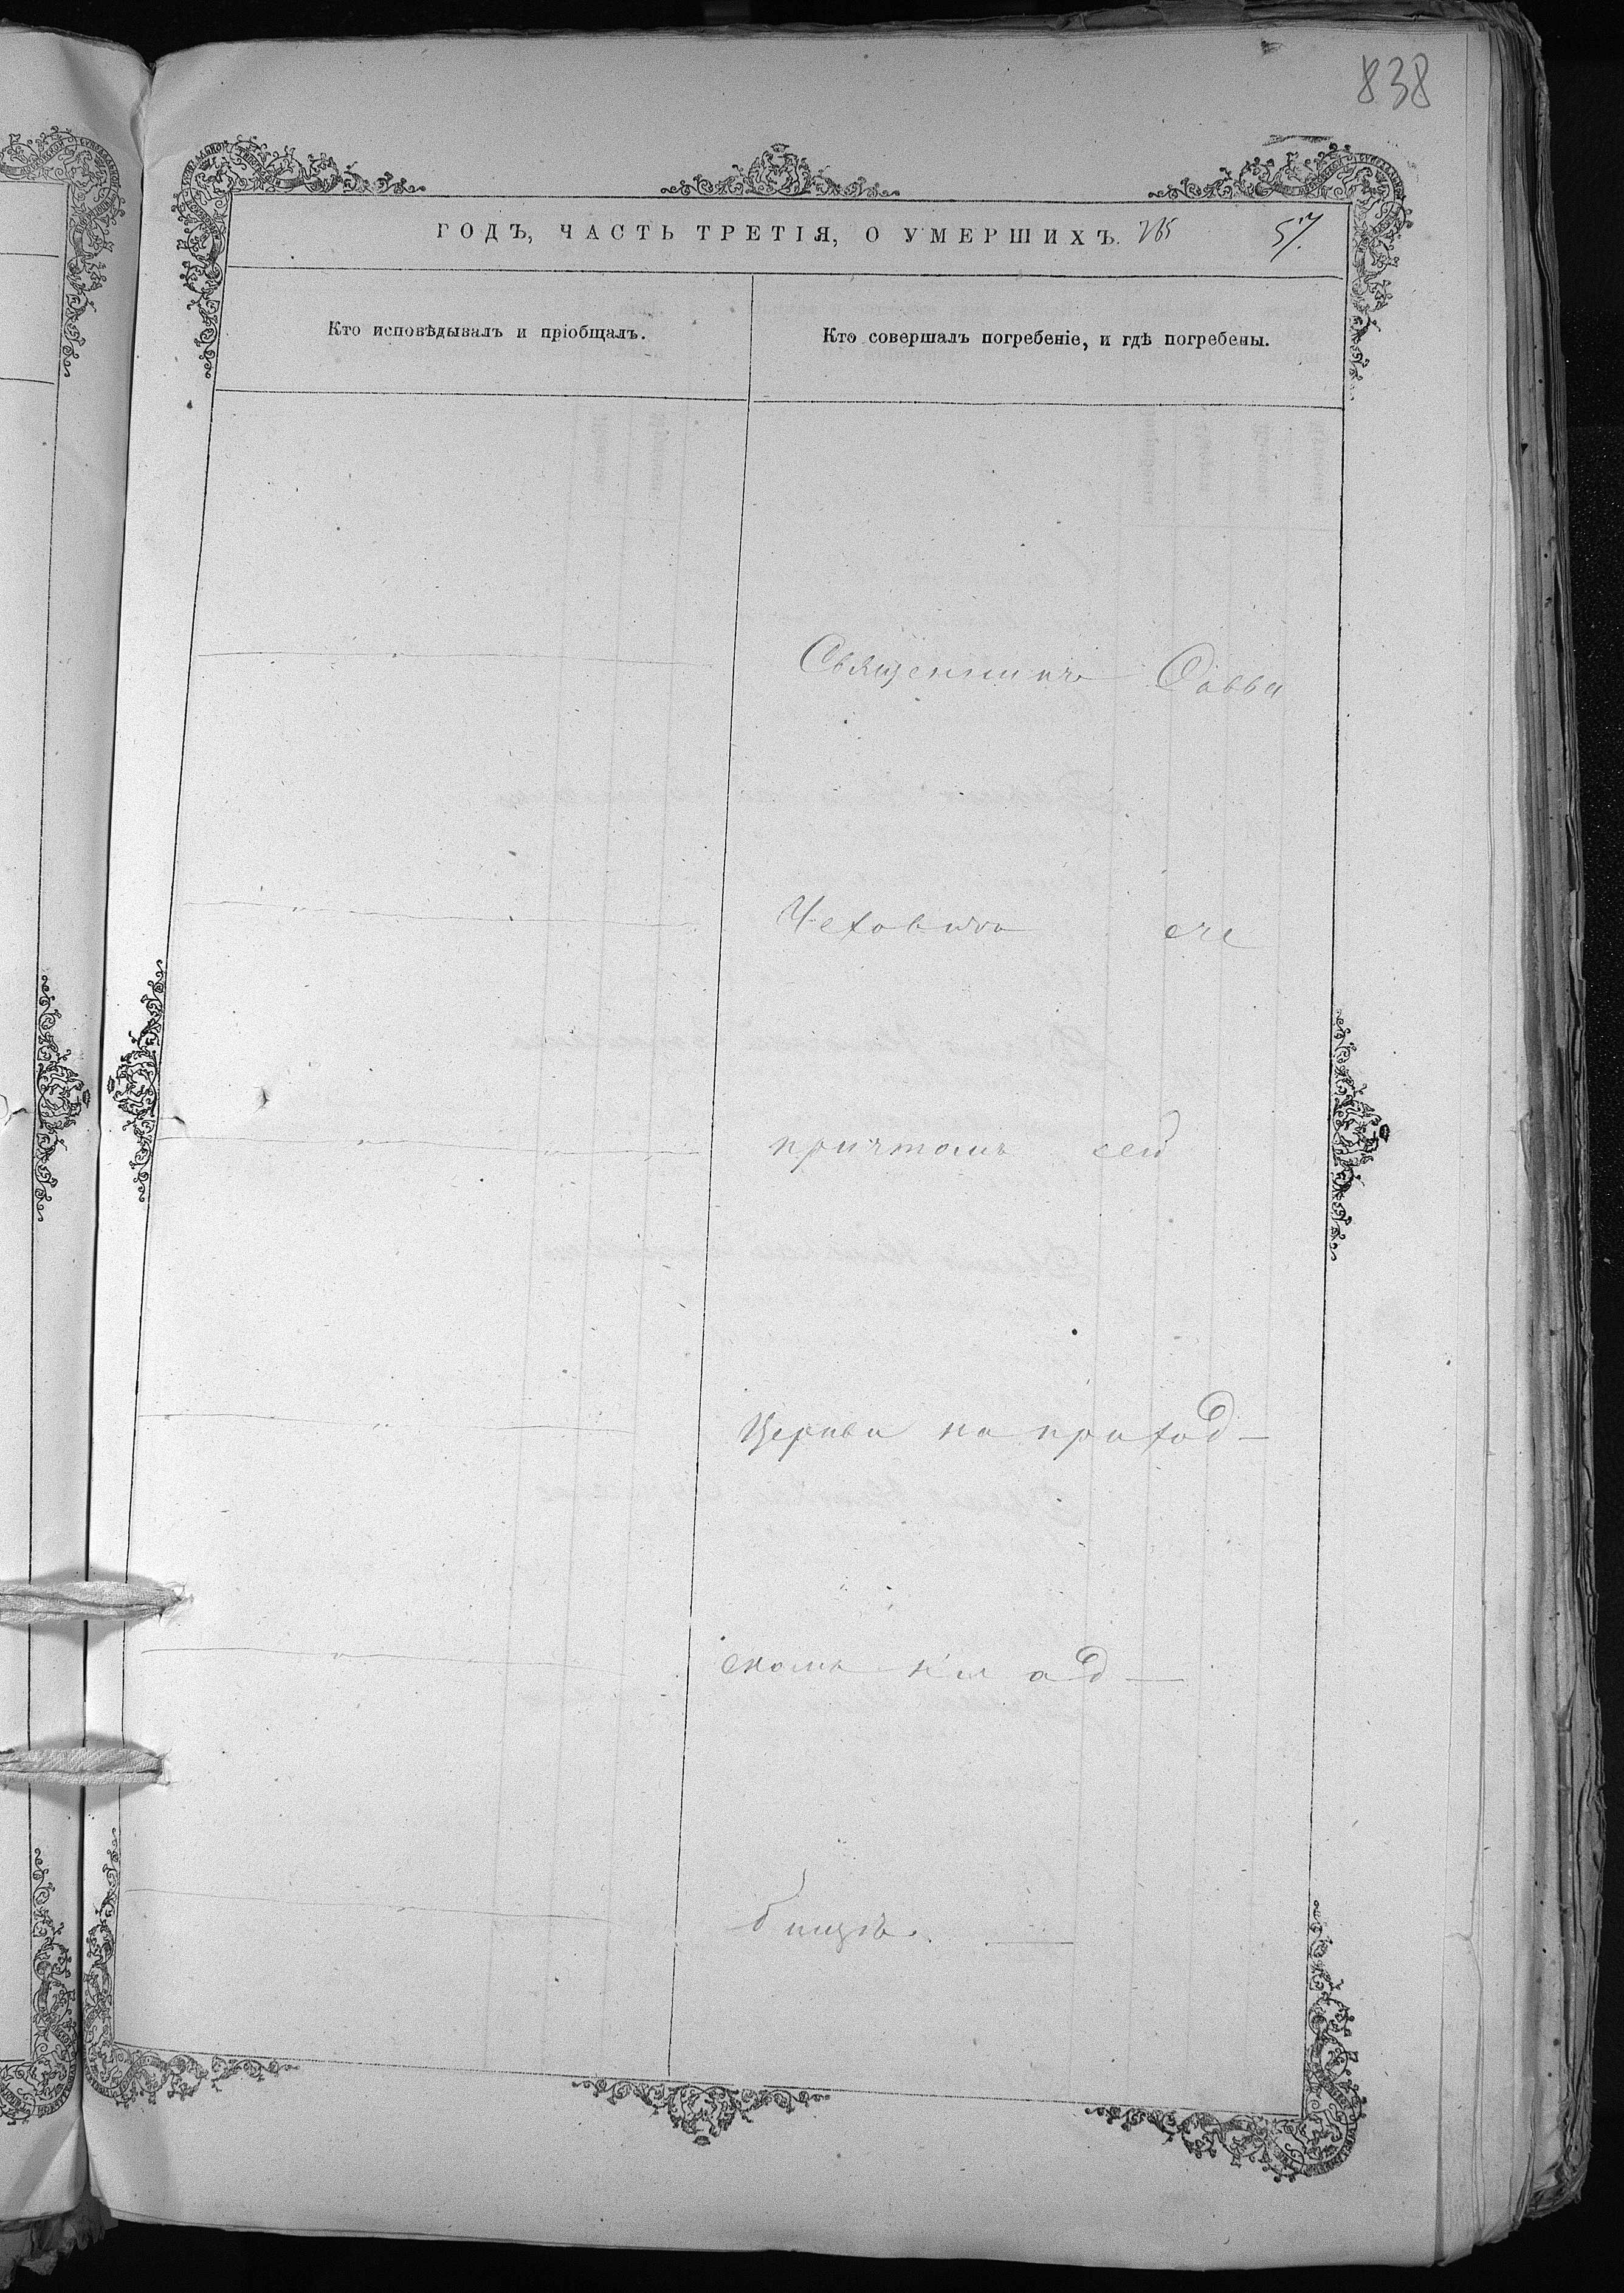 838
ГОДЪ, ЧАСТЬ ТРЕТІЯ, О УМЕРШИХЪ. 265 57.
Кто исповѣдывалъ и пріобщалъ.
Кто совершалъ погребеніе, и гдѣ погребены.
Священникъ Савва
Чеховичъ
причтомъ сей
Церкви на приход-
скомъ клад-
бищѣ.